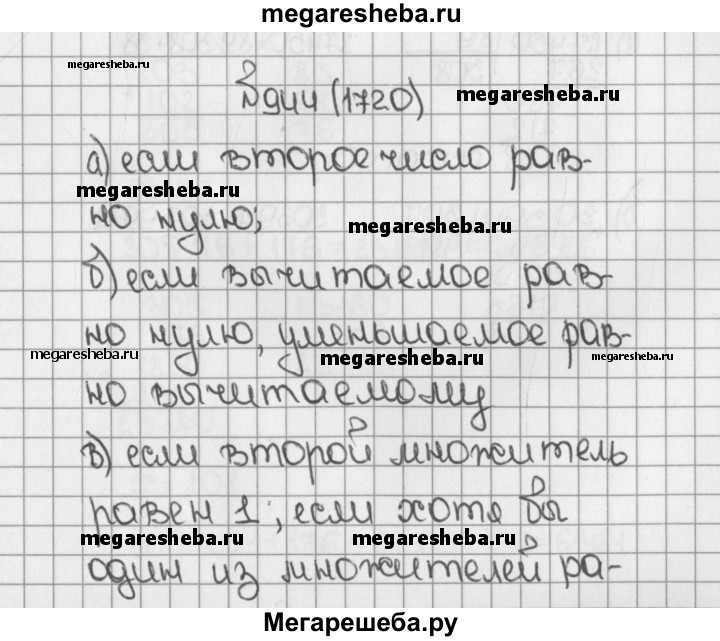 megaresheba.ru
megaresheba.ru
№944 (1720)
megaresheba.ru
а) если второе число рав-
megaresheba.ru
но нулю;
megaresheba.ru
б) если вычитаемое рав-
но нулю, уменьшаемое рав-
megaresheba.ru
megaresheba.ru
megaresheba.ru
но вычитаемому
в) если второй множитель
равен 1; если хотя бы
megaresheba.ru
megaresheba.ru
один из множителей ра-
Мегарешеба.ру